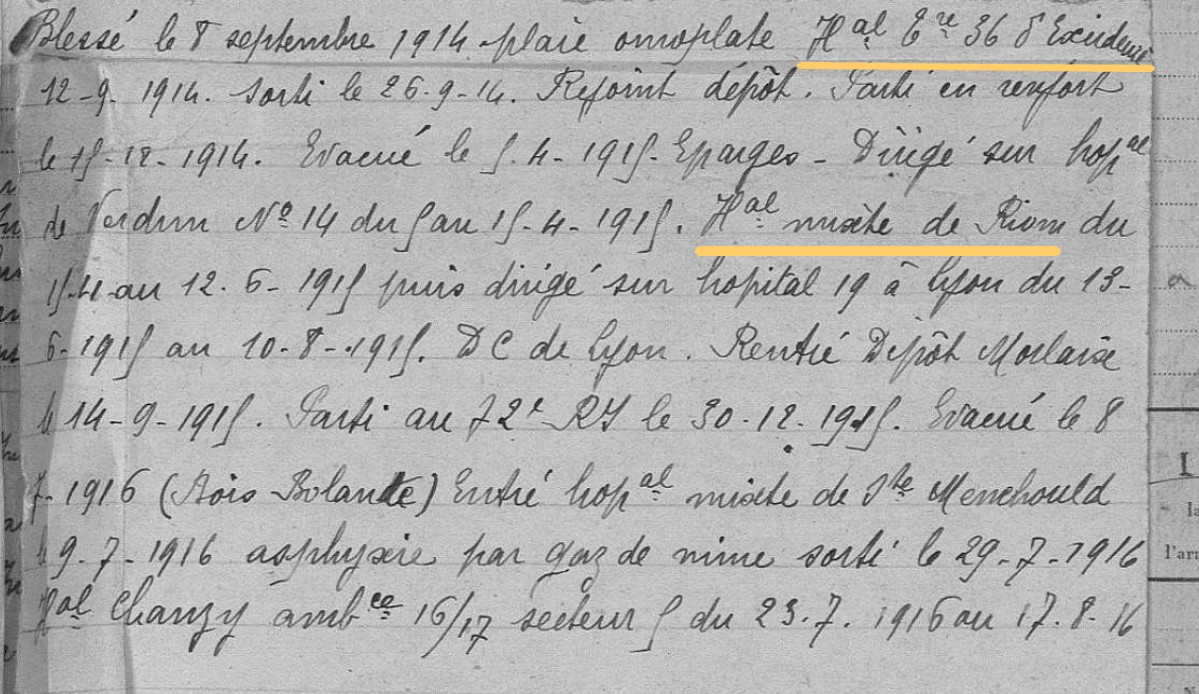 Blessé le 8 septembre 1914 plaie omoplate Hal Cre 36 d'Excideuil
12-9-1914. Sorti le 26-9-14. Rejoint dépôt. Parti en renfort
le 15-12-1914. Evacué le 5-4-1915. Eparges - Dirigé sur hopal
de Verdun No 14 du 5 au 15-4-1915. Hal mixte de Riom du
15-4 au 12-6-1915 puis dirigé sur hopital 19 à Lyon du 13-
6-1915 au 10-8-1915. DC de Lyon. Rentré Dépôt Morlaix
le 14-9-1915. Parti au 72e RI le 30-12-1915. Evacué le 8
7-1916 (Bois Bolante) Entré hopal mixte de Ste Menehould
le 9-7-1916 asphyxie par gaz de mine sorti le 29-7-1916
Hal Chanzy ambce 16/17 secteur 5 du 23.7.1916 au 17.8.16
L
la
l'arr